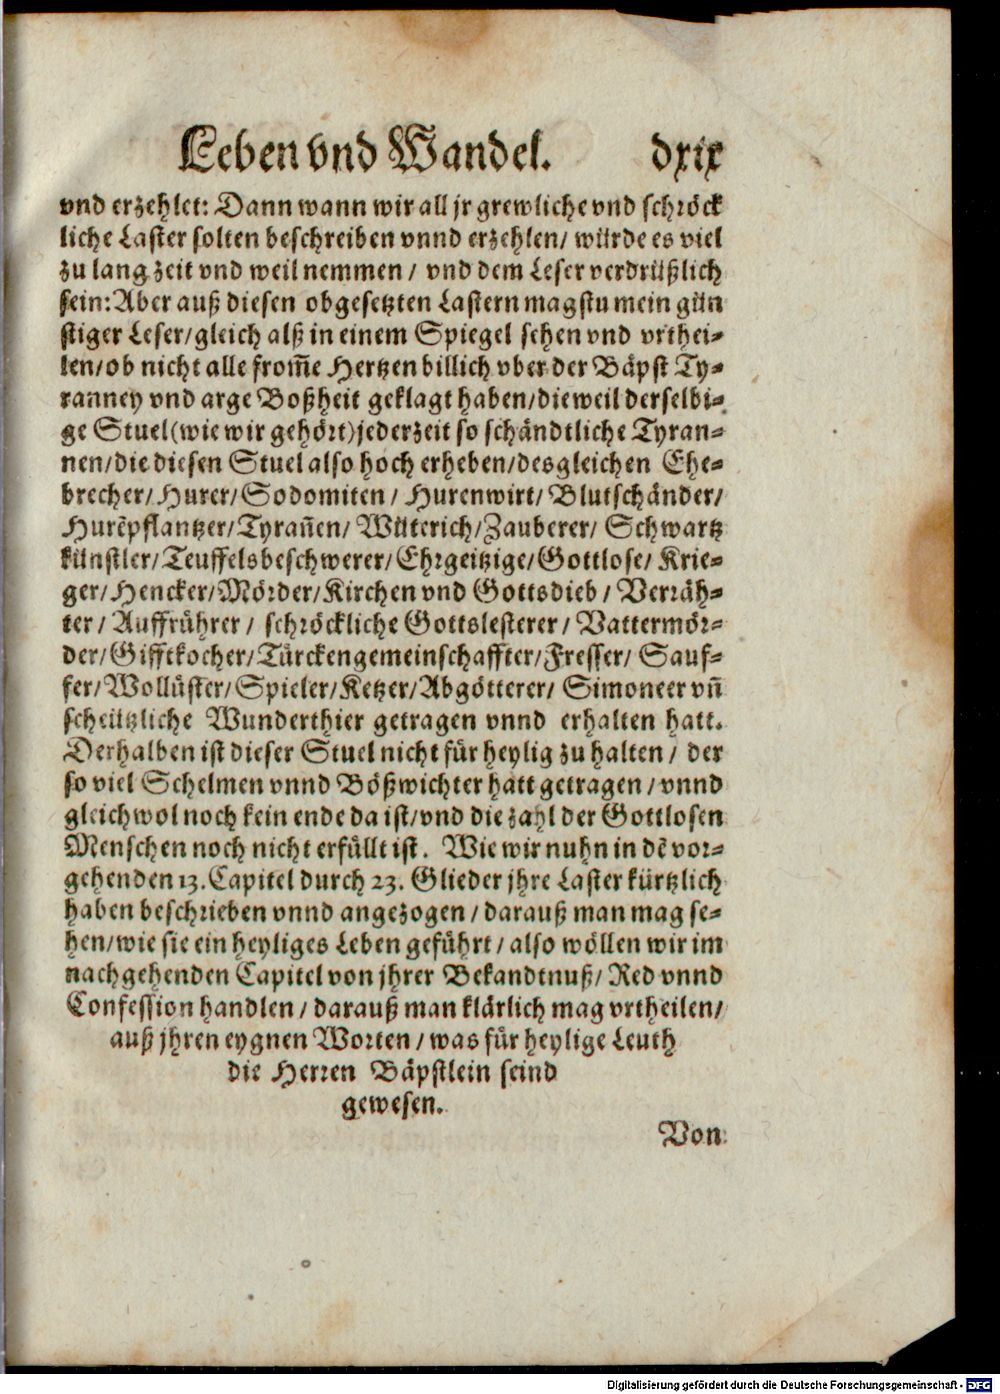 Leben vnd Wandel. dxix
vnd erzehlet: Dann wann wir all jr grewliche vnd schröck
liche Laster solten beschreiben vnnd erzehlen/ würde es viel
zu lang zeit vnd weil nemmen/ vnd dem Leser verdrüßlich
sein: Aber auß diesen obgesetzten Lastern magstu mein gün
stiger Leser/ gleich alß in einem Spiegel sehen vnd vrthei-
len/ ob nicht alle from̃e Hertzen billich vber der Bäpst Ty-
ranney vnd arge Boßheit geklagt haben/ dieweil derselbi-
ge Stuel (wie wir gehört) jederzeit so schändtliche Tyran-
nen/ die diesen Stuel also hoch erheben/ desgleichen Ehe-
brecher/ Hurer/ Sodomiten/ Hurenwirt/ Blutschänder/
Hurẽpflantzer/ Tyrañen/ Wüterich/ Zauberer/ Schwartz
künstler/ Teuffelsbeschwerer/ Ehrgeitzige/ Gottlose/ Krie-
ger/ Hencker/ Mörder/ Kirchen vnd Gottsdieb/ Verräh-
ter/ Auffrührer/ schröckliche Gottslesterer/ Vattermör-
der/ Gifftkocher/ Türckengemeinschaffter/ Fresser/ Sauf-
fer/ Wollüster/ Spieler/ Ketzer/ Abgötterer/ Simoneer vñ
scheützliche Wunderthier getragen vnnd erhalten hatt.
Derhalben ist dieser Stuel nicht für heylig zu halten/ der
so viel Schelmen vnnd Bößwichter hatt getragen/ vnnd
gleichwol noch kein ende da ist/ vnd die zahl der Gottlosen
Menschen noch nicht erfüllt ist. Wie wir nuhn in dẽ vor-
gehenden 13. Capitel durch 23. Glieder jhre Laster kürtzlich
haben beschrieben vnnd angezogen/ darauß man mag se-
hen/ wie sie ein heyliges Leben geführt/ also wöllen wir im
nachgehenden Capitel von jhrer Bekandtnuß/ Red vnnd
Confession handlen/ darauß man klärlich mag vrtheilen/
auß jhren eygnen Worten/ was für heylige Leuth
die Herren Bäpstlein seind
gewesen.
Von
Digitalisierung gefördert durch die Deutsche Forschungsgemeinschaft - DFG